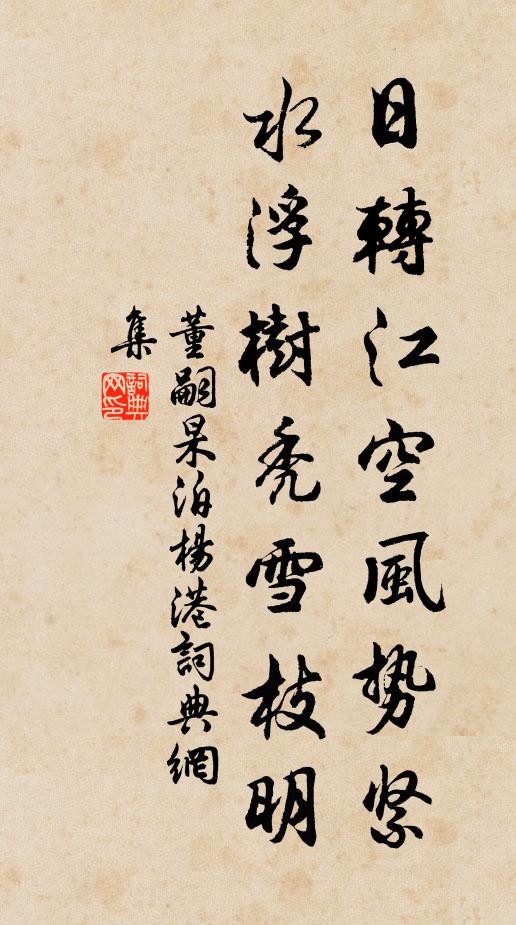 日轉江空風勢紧
水浮樹禿雪枝明
董嗣杲泊楊港詞典網
集
詞典
网印